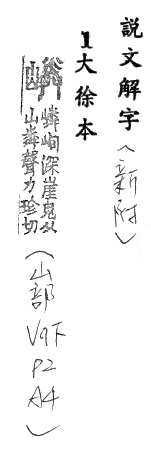 説文解字(新附)
1大徐本
嶙峋深崖皃从
山粦聲力珍切
(山部 V9下 P2 A4)